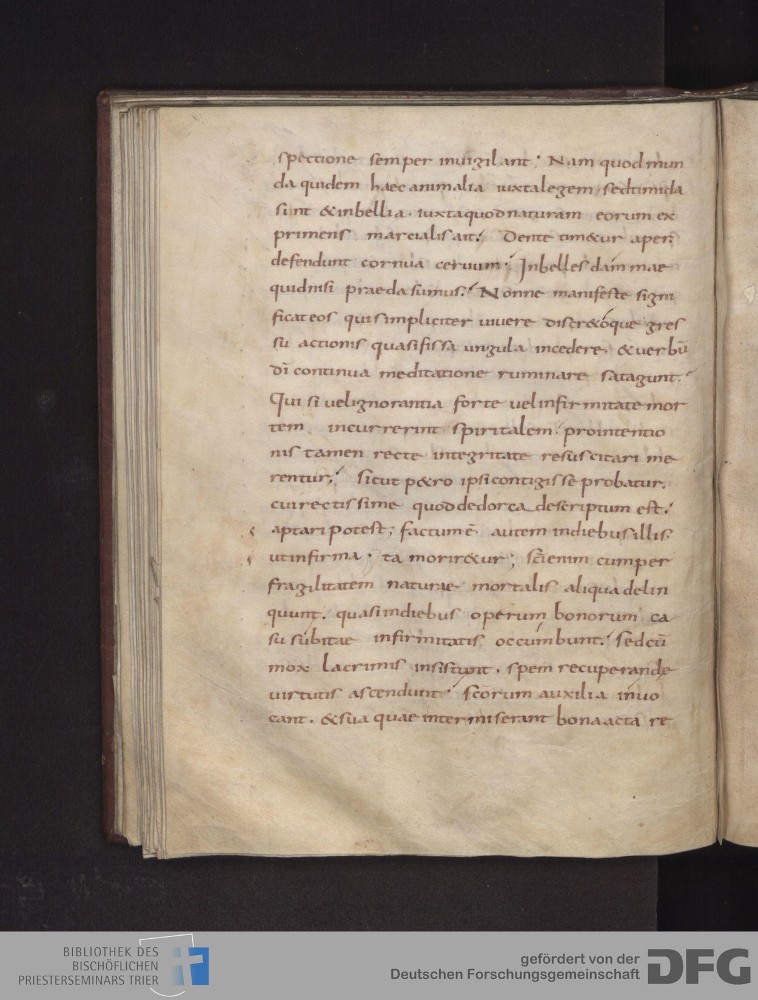 spectione semper inuigilant; Nam quod mun
da quidem haec animalia iuxta legem sed timida
sunt & inbellia. iuxta quod naturam eorum ex
primens marcialis ait; Dente tim&ur aper
defendunt cornua ceruum; Inbelles dammae
quid nisi praeda sumus; Nonne manifeste signi
ficat eos qui simpliciter uiuere discr&óque gres
su actionis quasi fissa ungula incedere. & uerbū
dī continua meditatione ruminare satagunt.
Qui si uel ignorantia forte uel infirmitate mor
tem incurrerint spiritalem. pro intentio
nis tamen recte integritate resuscitari me
rentur; sicut p&ro ipsi contigisse probatur.
cui rectissime quod de dorca descriptum est.
aptari potest; factum ē autem in diebus illis.
ut infirmata morir&ur; Sc̄i enim cum per
fragilitatem naturae mortalis aliqua delin
quunt. quasi in diebus operum bonorum ca
su súbitae infirmitatis occumbunt. Sed cū
mox lacrimis insistunt. spem recuperande
uirtutis ascendunt. sc̄orum auxilia inuo
cant. & sua quae intermiserant bona acta re
BIBLIOTHEK DES
BISCHÖFLICHEN
PRIESTERSEMINARS TRIER
gefördert von der
Deutschen Forschungsgemeinschaft
DFG